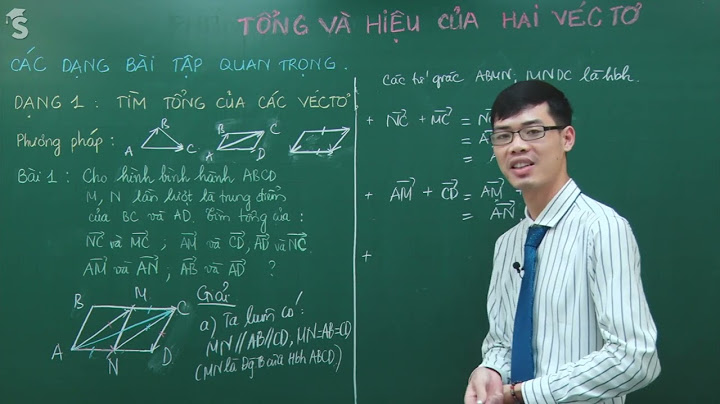 S
TỔNG VÀ HIỆU CỦA HAI VÉCTƠ
CÁC DẠNG BÀI TẬP QUAN TRỌNG.
DẠNG 1 : TÌM TỔNG CỦA CÁC VÉCTƠ
Phương pháp :
A B C
A B C D
Bài 1 : Cho hình bình hành ABCD
M, N lần lượt là trung điểm
của BC và AD. Tìm tổng của :
NC và MC ; AM và CD, AD và NC.
AM và AN ; AB và AD ?
B M C
A N D
Giải
a) Ta luôn có:
MN // AB // CD, MN = AB = CD
(MN là Đg B của Hbh ABCD)
Các tứ giác ABMN, MNDC là hbh.
+ NC + MC =
=
=
+ AM + CD = AM
= AN
+